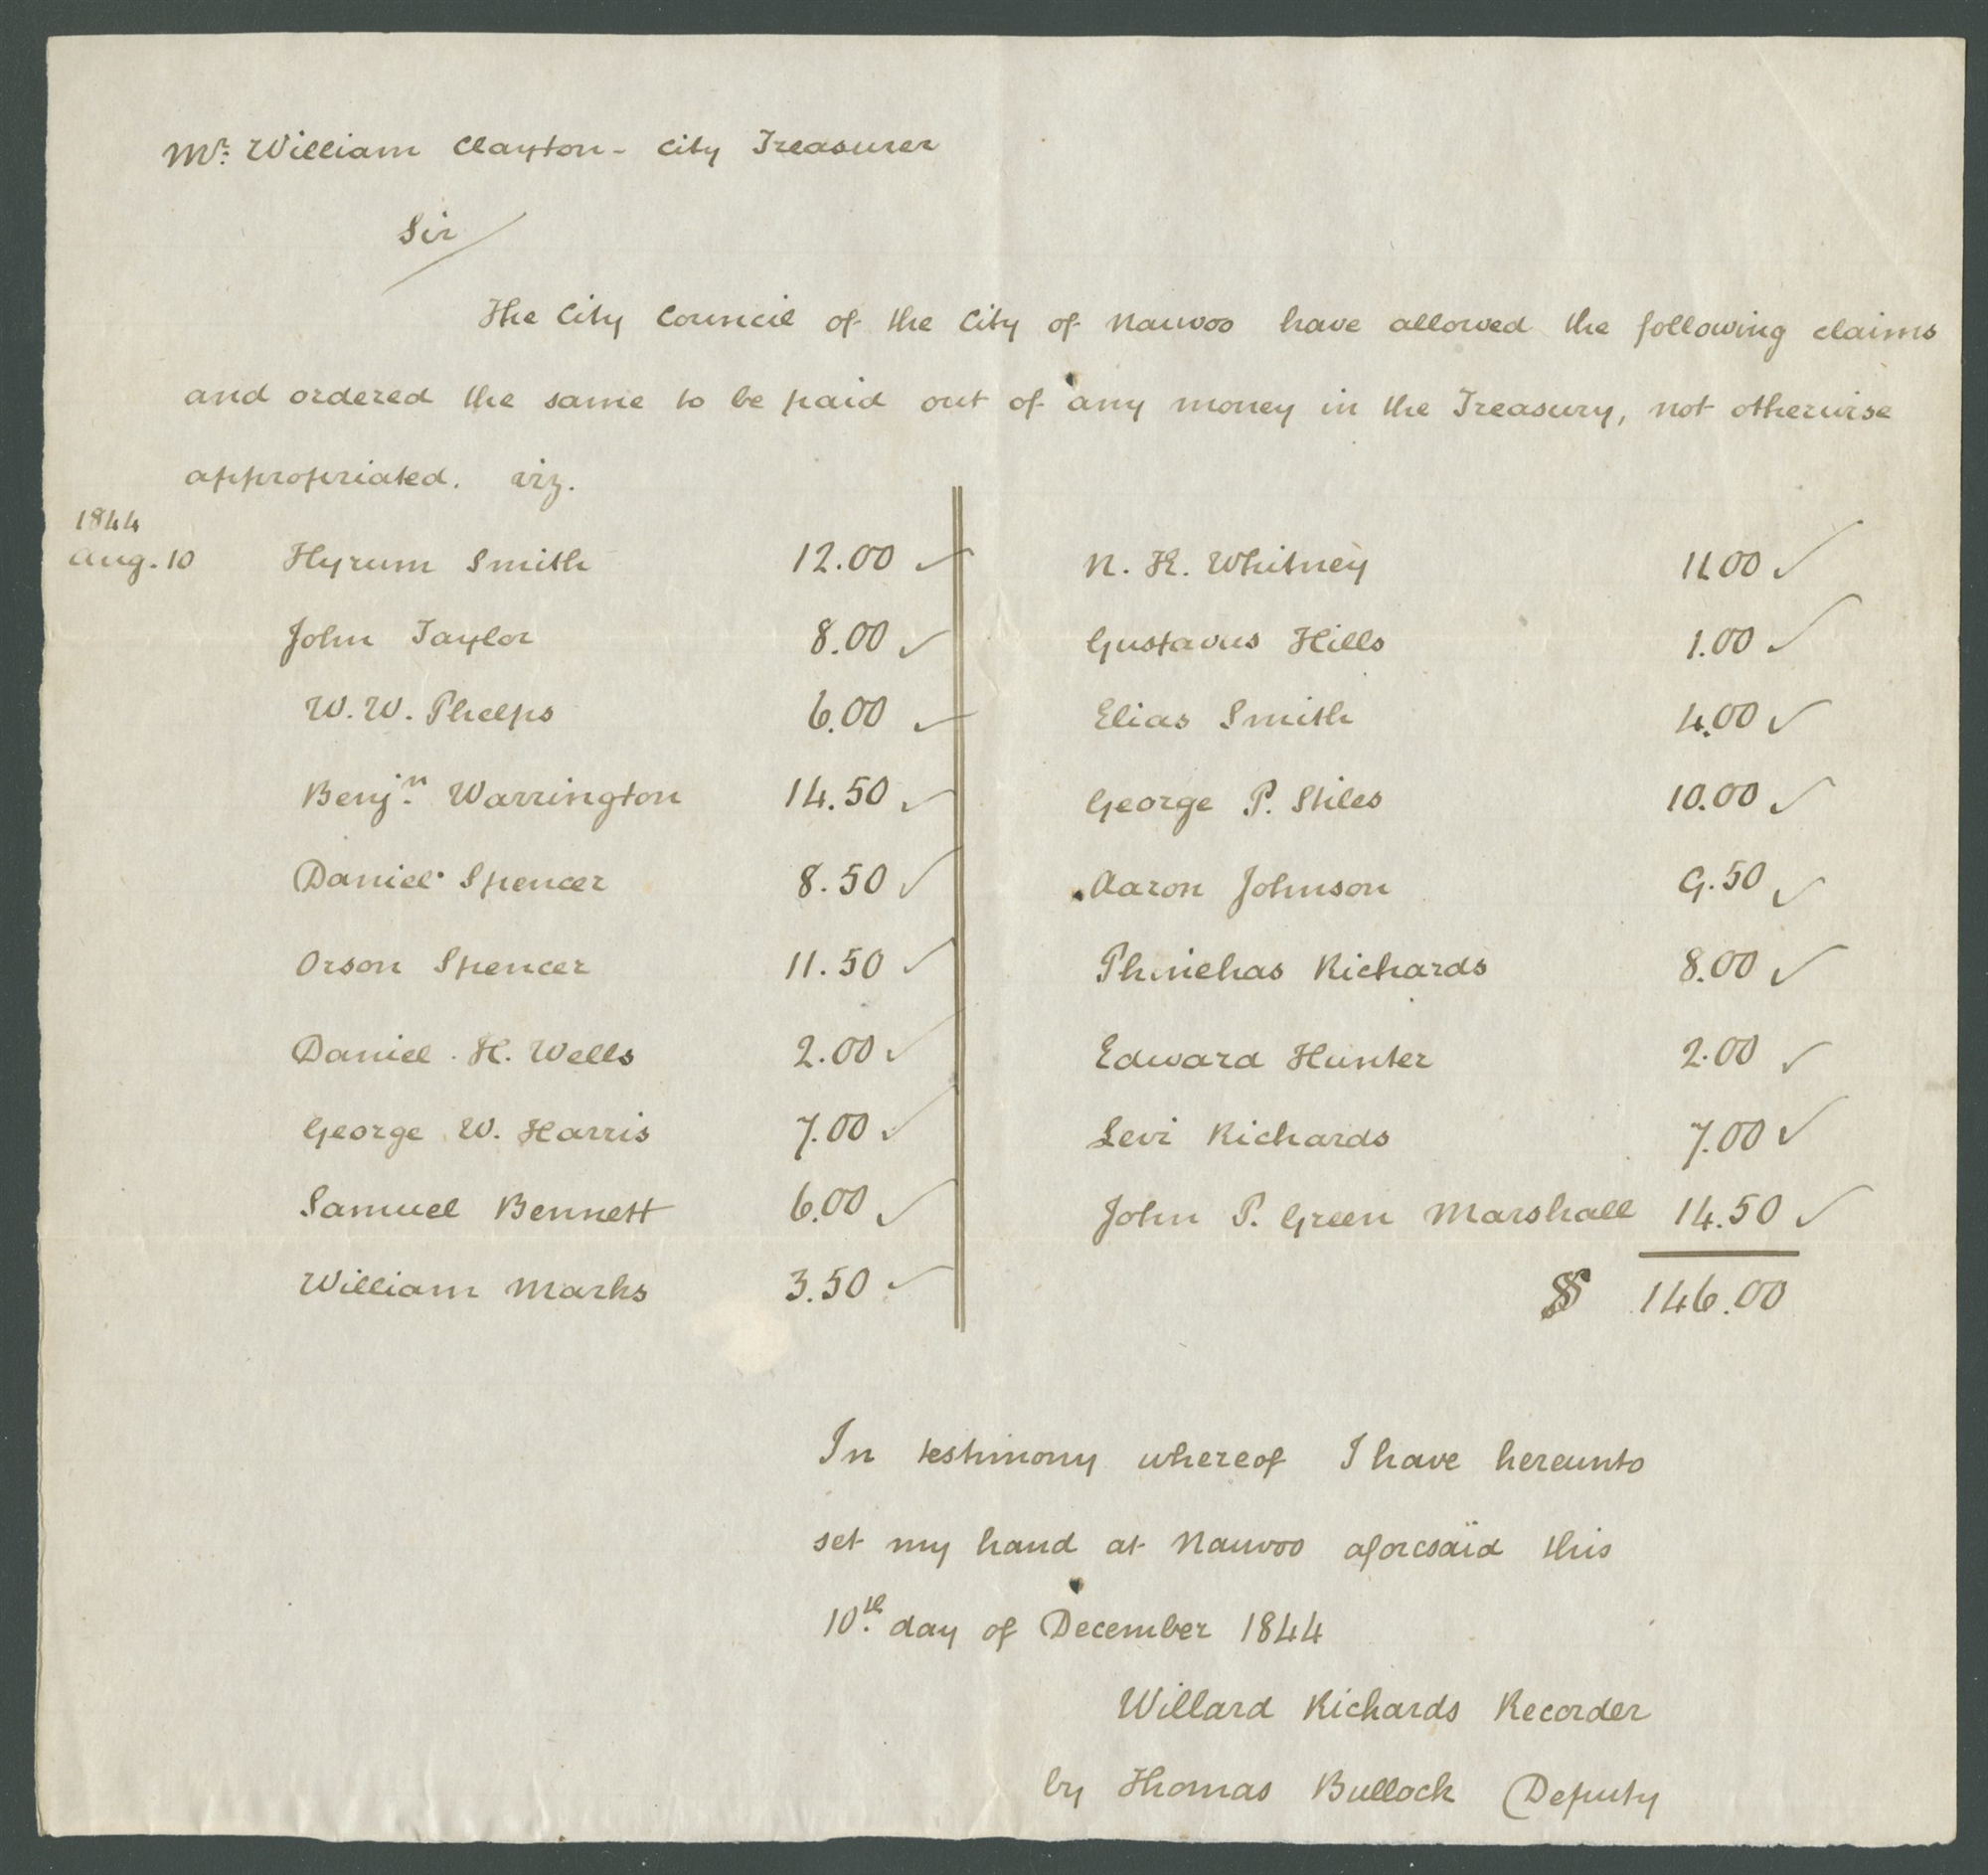 Mr. William Clayton - City Treasurer
Sir
The City Council of the City of Nauvoo have allowed the following claims
and ordered the same to be paid out of any money in the Treasury, not otherwise
appropriated. viz.
1844
Aug. 10 Hyrum Smith 12.00 ✓
John Taylor 8.00 ✓
W. W. Phelps 6.00 ✓
Benjn. Warrington 14.50 ✓
Daniel Spencer 8.50 ✓
Orson Spencer 11.50 ✓
Daniel H. Wells 2.00 ✓
George W. Harris 7.00 ✓
Samuel Bennett 6.00 ✓
William Marks 3.50 ✓
N. K. Whitney 11.00 ✓
Gustavus Hills 1.00 ✓
Elias Smith 4.00 ✓
George P. Stiles 10.00 ✓
Aaron Johnson 9.50 ✓
Phinehas Richards 8.00 ✓
Edward Hunter 2.00 ✓
Levi Richards 7.00 ✓
John P. Green Marshall 14.50 ✓
$ 146.00
In testimony whereof I have hereunto
set my hand at Nauvoo aforesaid this
10th. day of December 1844
Willard Richards Recorder
by Thomas Bullock Deputy